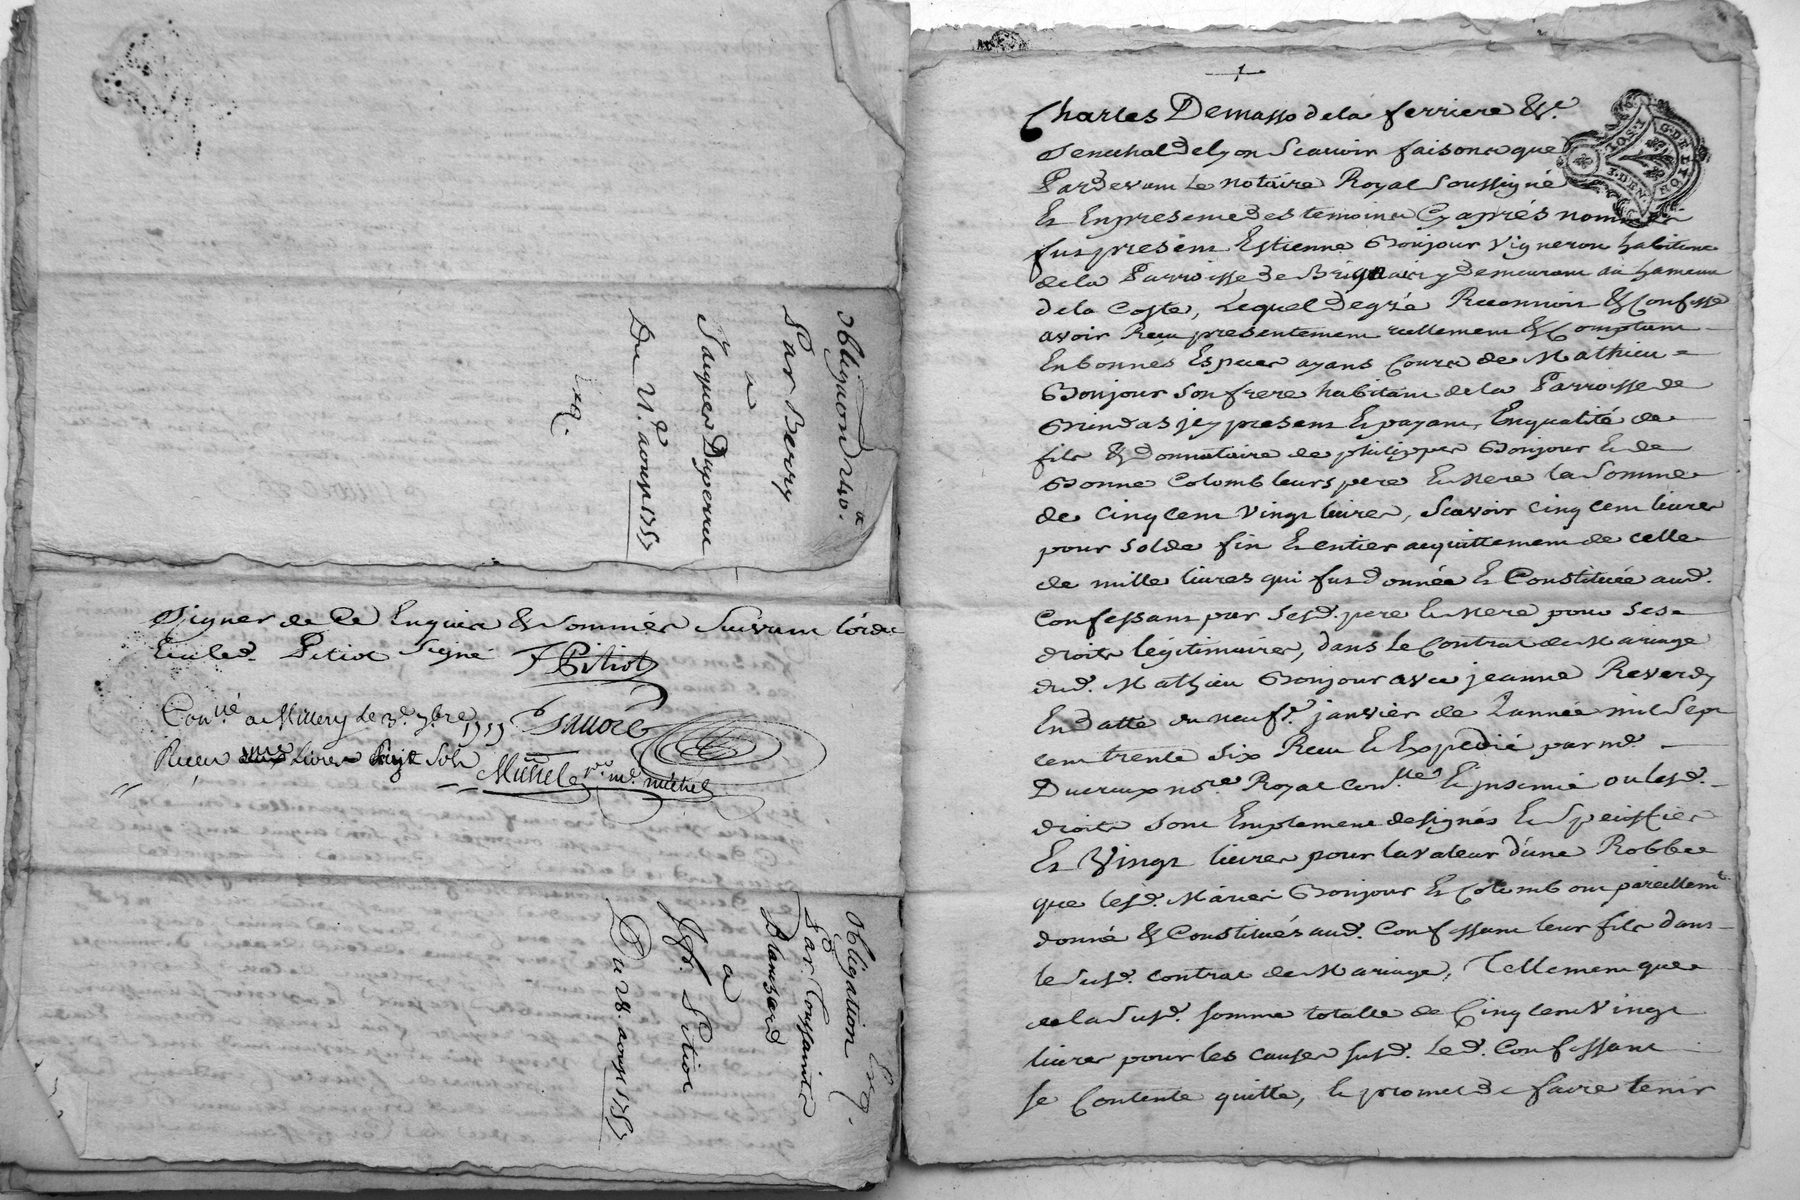 obligaon 240.ᵗᵗ
Par Berry
a
Jaques Duperra
Du 21.ᵉ aoust 1757
Exp.
Signer de Ce Enquis & Sommés Suivant l'ordce
led. Pitiot Signé F Pitiot
Con.ˡᵉ a Millery le 3.ᵉ 7bre 1757
Receu livres sols Michel
m.ᵉ michel
obligation
Par Toussainte
Blanzard
a
Jⁿ. Fr. Pitiot
Du 28. aoust 1757
Exp.
Charles Demasso dela ferriere &ᵉ.
Senechal delyon Scavoir faisons que
Pardevant Le notaire Royal Soussigné
Et Enpresence des temoins Cy aprés nommés
fust present Estienne Bonjour Vigneron habitant
dela Parroisse de Brignais y demeurant au hameau
dela Coste, Lequel degré Reconnoit & Confesse
avoir Receu presentement reellement & Comptant
En bonnes Especes ayans Cours de Mathieu =
Bonjour Son frere habitant de la Parroisse de
Brindas jcy present Et payant, Enqualité de
fils & donnataire de philippes Bonjour Et de
Bonne Colomb leurs pere Et Mere la Somme
de Cinq cent Vingt livres, Scavoir Cinq cent livres
pour Solde fin Et entier acquittement de celle
de mille livres qui fust donnée Et Constituée aud.
Confessant par Sesd. pere Et Mere pour ses
droits légitimaires, dans Le Contrat de Mariage
dud. Mathieu Bonjour avec jeanne Reverdy
En datte du neufᵉ. janvier de L'année mil Sept
cent trente Six Receu Et Expedié par mᵉ. —
Ducreux noʳᵉ Royal Conˡˡᵉ Et jnsinué ou lesd. —
droits Sont Emplement designés Et Speciffiés
Et Vingt livres pour la valeur d'une Robbe
que lesd. Mariés Bonjour Et Colomb ont pareillemᵗ
donné & Constitués aud. Confessant leur fils dans —
le Susd. contrat de Mariage, Tellement que
de la Susd. Somme totalle de Cinq Cent Vingt
livres pour les causes susd. Led. Confessant
Se Contente quitte, Et promet de faire tenir
G. DE LYON